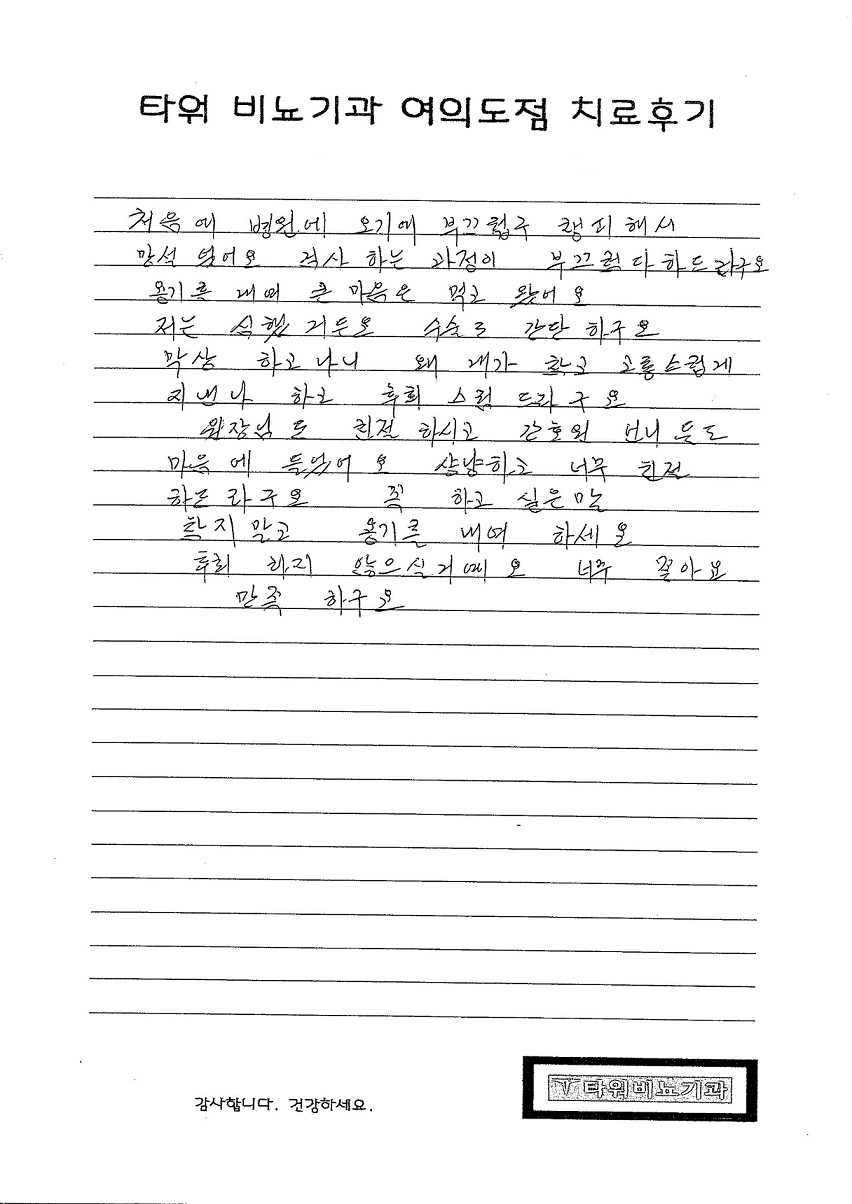 타워 비뇨기과 여의도점 치료후기
처음에 병원에 오기에 부끄럽구 챙피해서
망설 였어요 검사 하는 과정이 부끄럽다 하드라구요
용기를 내여 큰 마음은 먹고 왔어요
저는 심했거든요 수술도 간단하구요
막상 하고나니 왜 내가 참고 고통스럽게
지냈나 하고 후회 스럽 드라구요
원장님도 친절 하시고 간호원 언니 들도
마음에 들었어요 상냥하고 너무 친절
하드라구요 꼭 하고 싶은 말
참지 말고 용기를 내여 하세요
후회 하지 않으실거예요 너무 좋아요
만족 하구요
감사합니다. 건강하세요.
타워비뇨기과